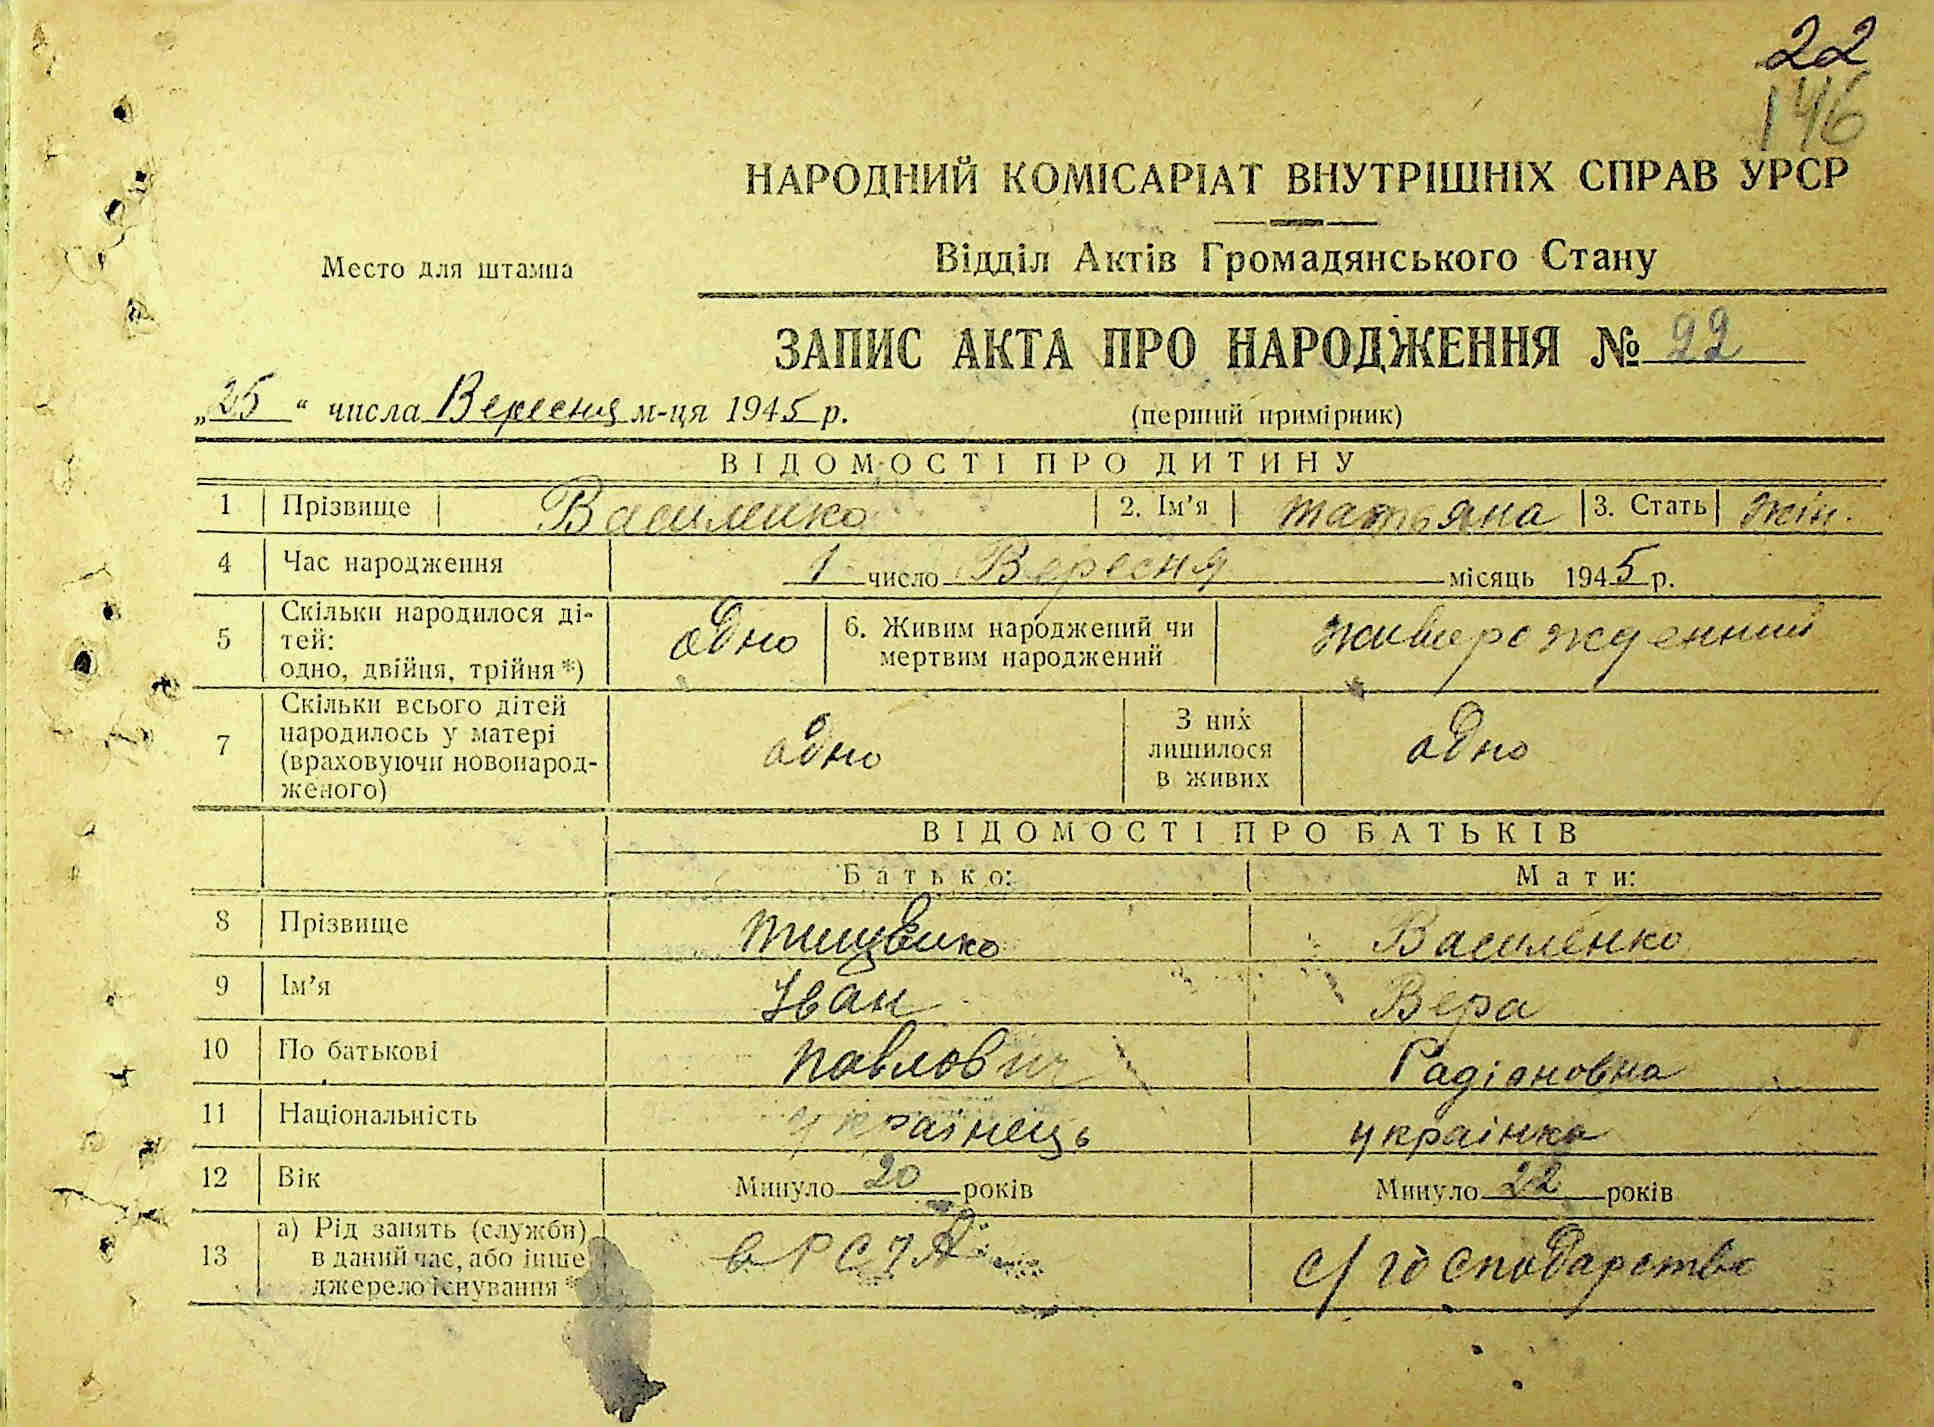 22
146
НАРОДНИЙ КОМІСАРІАТ ВНУТРІШНІХ СПРАВ УРСР
Место для штампа
Відділ Актів Громадянського Стану
ЗАПИС АКТА ПРО НАРОДЖЕННЯ № 22
„25“ числа Вересня м-ця 1945 р. (перший примірник)
ВІДОМОСТІ ПРО ДИТИНУ
1 Прізвище Василенко 2. Ім'я Татьяна 3. Стать жін.
4 Час народження 1 число Вересня місяць 1945 р.
5 Скільки народилося ді-
тей:
одно, двійня, трійня *) одно 6. Живим народжений чи
мертвим народжений живирожденний
7 Скільки всього дітей
народилось у матері
(враховуючи новонарод-
женого) одно З них
лишилося
в живих одно
ВІДОМОСТІ ПРО БАТЬКІВ
Батько: Мати:
8 Прізвище Тищенко Василенко
9 Ім'я Іван Вера
10 По батькові Павлович Радіоновна
11 Національність українець українка
12 Вік Минуло 20 років Минуло 22 років
13 а) Рід занять (служби)
в даний час, або інше
джерело існування * в РСЧА с/господарство